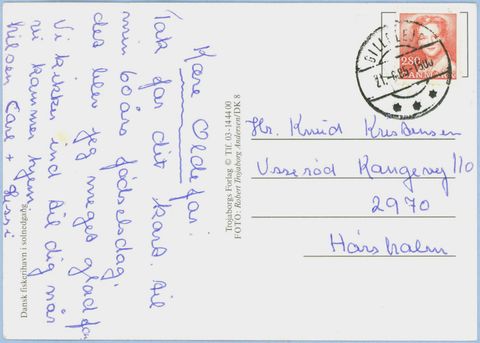 Kære Oldefar.
Tak for dit kort til
min 60 års fødselsdag,
det blev jeg meget glad for
Vi kikker ind til dig når
vi kommer hjem.
hilsen Carl +
Dansk fiskerihavn i solnedgang
Trojaborgs Forlag © Tlf. 03-1444 00
FOTO: Robert Trojaborg Andersen/DK 8
GILLELEJE
21.-6.85-1500
280
DANMARK
Hr. Knud Kristensen
Usserød Kongevej 110
2970
Hørsholm